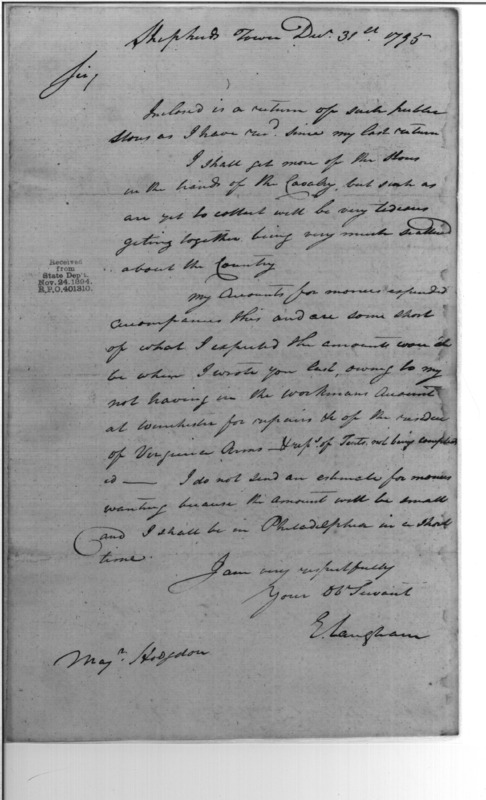 Shepherds Town Decr. 31st 1795
Sir,
Inclosed is a return of such public
stores as I have recd. since my last return
I shall get more of the stores
in the hands of the Cavalry, but such as
are yet to collect will be very tedious
geting together being very much scattered
about the Country
Received
from
State Dep't.
Nov. 24. 1894.
R.P.O. 401310.
My Accounts for moneys expended
accompanies this and are some short
of what I expected the amounts would
be when I wrote you last, owing to my
not having in the workmans Account
at Winchester for repairs &c of the residue
of Virginia Arms & reps. of Tents, not being compleat
ed — I do not send an estimate for moneys
wanting because the amount will be small
and I shall be in Philadelphia in a short
time.
I am very respectfully
Your Ob Servant
E Langham
Majr. Hodgdon